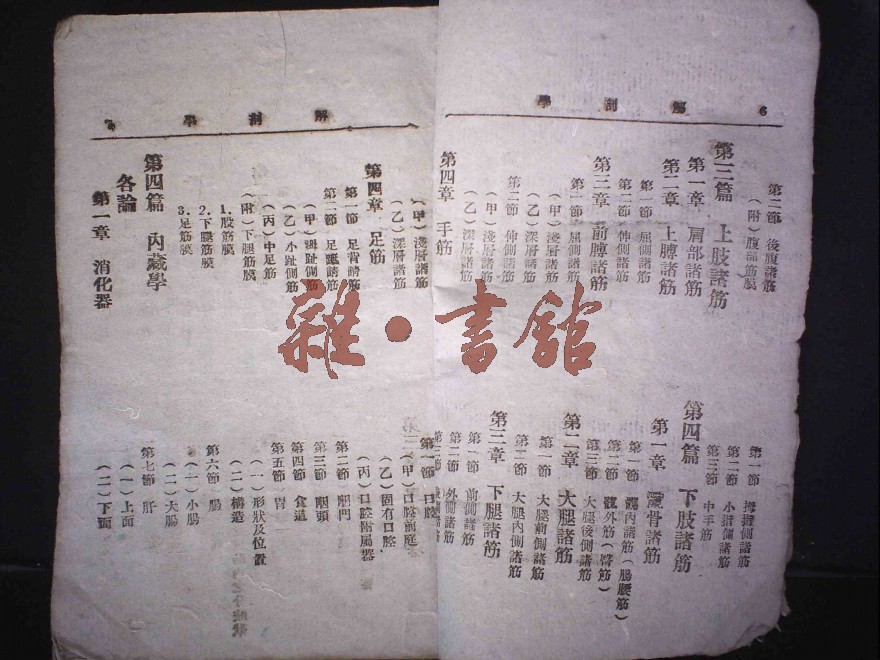 解剖學 6
第二節 後腹諸筋
（附）腹部筋膜
第三篇 上肢諸筋
第一章 肩部諸筋
第二章 上膊諸筋
第一節 屈側諸筋
第二節 伸側諸筋
第三章 前膊諸筋
第一節 屈側諸筋
（甲）淺層諸筋
（乙）深層諸筋
第二節 伸側諸筋
（甲）淺層諸筋
（乙）深層諸筋
第四章 手筋
第一節 拇指側諸筋
第二節 小指側諸筋
第三節 中手筋
第四篇 下肢諸筋
第一章 髖骨諸筋
第一節 髖內諸筋（腸腰筋）
第二節 髖外筋（臀筋）
第三節 大腿後側諸筋
第二章 大腿諸筋
第一節 大腿前側諸筋
第二節 大腿內側諸筋
第三章 下腿諸筋
第一節 前側諸筋
第二節 外側諸筋
第三節
解剖學 7
（甲）淺層諸筋
（乙）深層諸筋
第四章 足筋
第一節 足背諸筋
第二節 足蹠諸筋
（甲）拇趾側筋
（乙）小趾側筋
（丙）中足筋
（附）下腿筋膜
1.股筋膜
2.下腿筋膜
3.足筋膜
第四篇 內藏學
各論
第一章 消化器
第一節 口腔
（甲）口腔前庭
（乙）固有口腔
（丙）口腔附屬器
第二節 咽門
第三節 咽頭
第四節 食道
第五節 胃
（一）形狀及位置
（二）構造
第六節 腸
（一）小腸
（二）大腸
第七節 肝
（一）上面
（二）下面
雜·書館